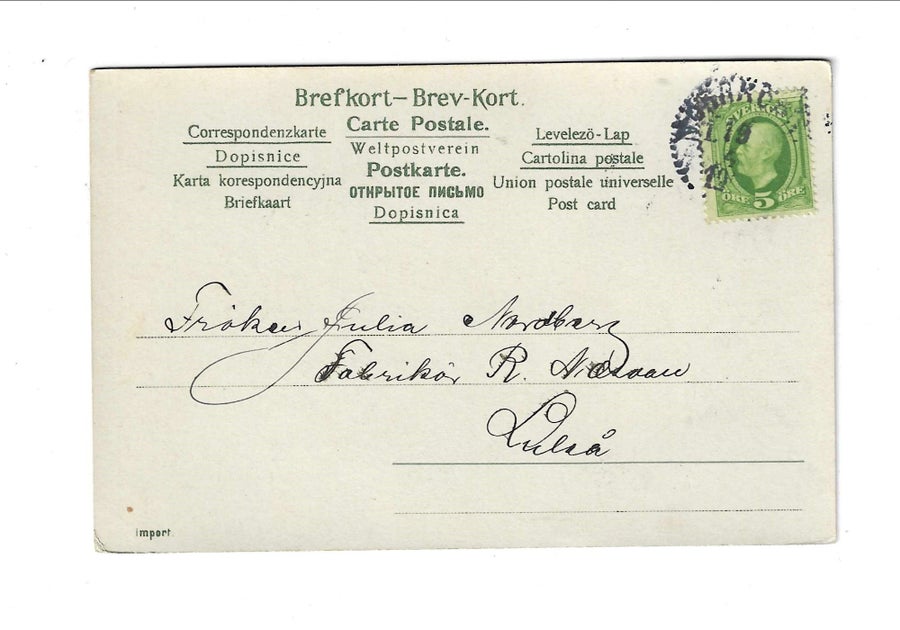 Brefkort – Brev-Kort.
Correspondenzkarte
Dopisnice
Karta korespondencyjna
Briefkaart
Carte Postale.
Weltpostverein
Postkarte.
ОТКРЫТОЕ ПИСЬМО
Dopisnica
Levelezö-Lap
Cartolina postale
Union postale universelle
Post card
SVERIGE
ÖRE 5 ÖRE
Fröken Julia Nordberg
Fabrikör R.
Luleå
Import